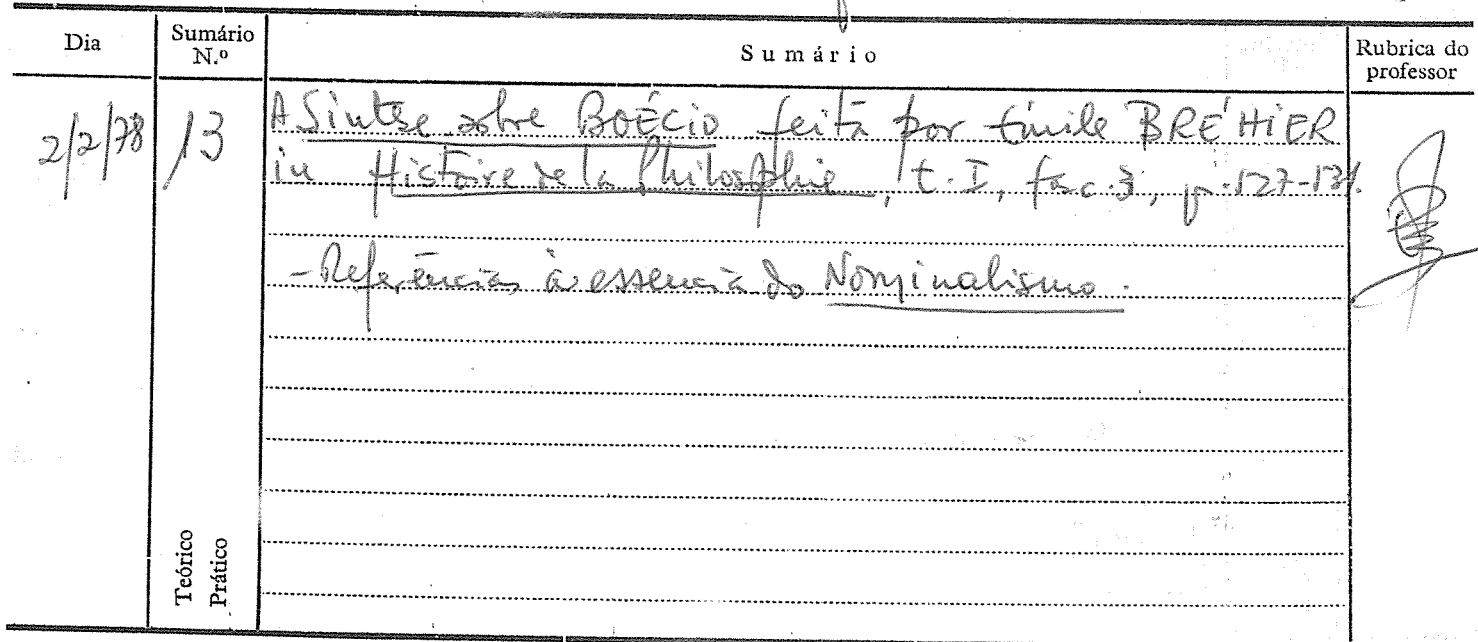 Dia
Sumário N.º
Sumário
Rubrica do professor
2/2/78
13
A Síntese sobre BOÉCIO feita por Émile BRÉHIER
in Histoire de la Philosophie, t. I, fac. 3, p. 527-531.
- Referências à essência do Nominalismo.
Teórico
Prático